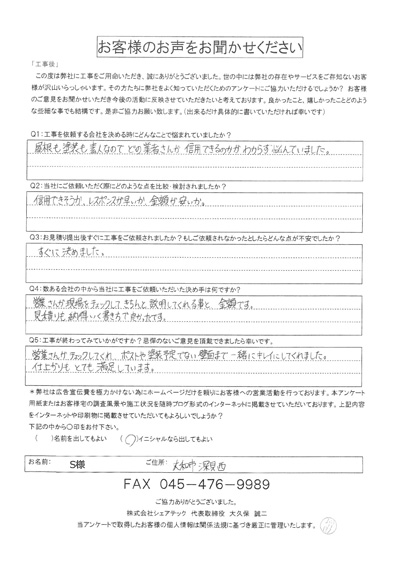 お客様のお声をお聞かせください
「工事後」
この度は弊社に工事をご用命いただき、誠にありがとうございました。世の中には弊社の存在やサービスをご存知ないお客
様が沢山いらっしゃいます。その方たちに弊社をよく知っていただくためのアンケートにご協力いただけるでしょうか？ お客様
のご意見をお聞かせいただき今後の活動に反映させていただきたいと考えております。良かったこと、嬉しかったことどのよう
な些細な事でも結構です。是非ご協力お願い致します。（出来るだけ具体的に書いていただければ幸いです）
Q1：工事を依頼する会社を決める時にどんなことで悩まれていましたか？
屋根も塗装も素人なので どの業者さんが 信用できるのかがわからず悩んでいました。
Q2：当社にご依頼いただく際にどのような点を比較・検討されましたか？
信用できそうか、レスポンスが早いか、金額が安いか。
Q3：お見積り提出後すぐに工事をご依頼されましたか？もしご依頼されなかったとしたらどんな点が不安でしたか？
すぐに決めました。
Q4：数ある会社の中から当社に工事をご依頼いただいた決め手は何ですか？
営業さんが現場をチェックしてきちんと説明してくれる事と、金額です。
見積りも納得いく書き方で良かったです。
Q5：工事が終わってみていかがですか？忌保のないご意見を頂戴できましたら幸いです。
営業さんがチェックしてくれ、ポストや塗装予定でない壁面まで一緒にキレイにしてくれました。
仕上がりも とても 満足しています。
＊弊社は広告宣伝費を極力かけない為にホームページだけを頼りにお客様への営業活動を行っております。本アンケート
用紙またはお客様宅の調査風景や施工状況を随時ブログ形式のインターネットに掲載させていただいております。上記内容
をインターネットや印刷物に掲載させていただいてもよろしいでしょうか？
下記の中から〇印をお付下さい。
（ ）名前を出してもよい （〇）イニシャルなら出してもよい
お名前： S様 ご住所： 大和市 深見西
FAX 045-476-9989
ご協力ありがとうございました。
株式会社シェアテック 代表取締役 大久保 誠二
当アンケートで取得したお客様の個人情報は関係法規に基づき厳正に管理いたします。